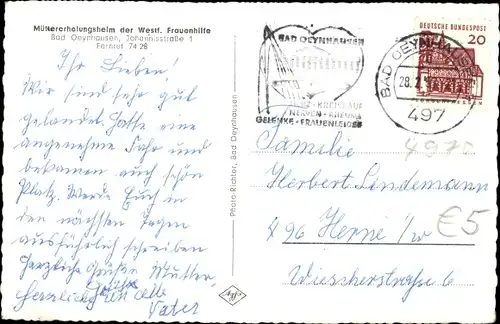 Müttererholungsheim der Westf. Frauenhilfe
Bad Oeynhausen, Johannisstraße 1
Fernruf 74 28
Ihr Lieben!
Wir sind sehr gut
gelandet. Hatte eine
angenehme Fahr und
bekamen auch schön
Platz. Werde Euch in
den nächsten Tagen
ausführlich schreiben
Herzliche Grüße Mutter.
Herzliche Grüße
an alle
Vater
Photo-Richter, Bad Oeynhausen
BAD OEYNHAUSEN
HERZ · KREISLAUF
NERVEN · RHEUMA
GELENKE · FRAUENLEIDEN
BAD OEYNHAUSEN
28.2.
497
DEUTSCHE BUNDESPOST
20
4970
Familie
Herbert Lindemann
496 Herne i/w
Wiescherstraße 6
€5